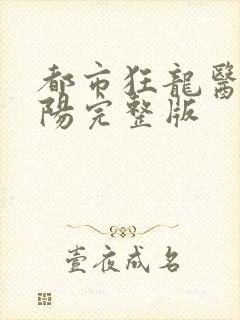 都市狂龍醫
陽完整版
壹夜成名